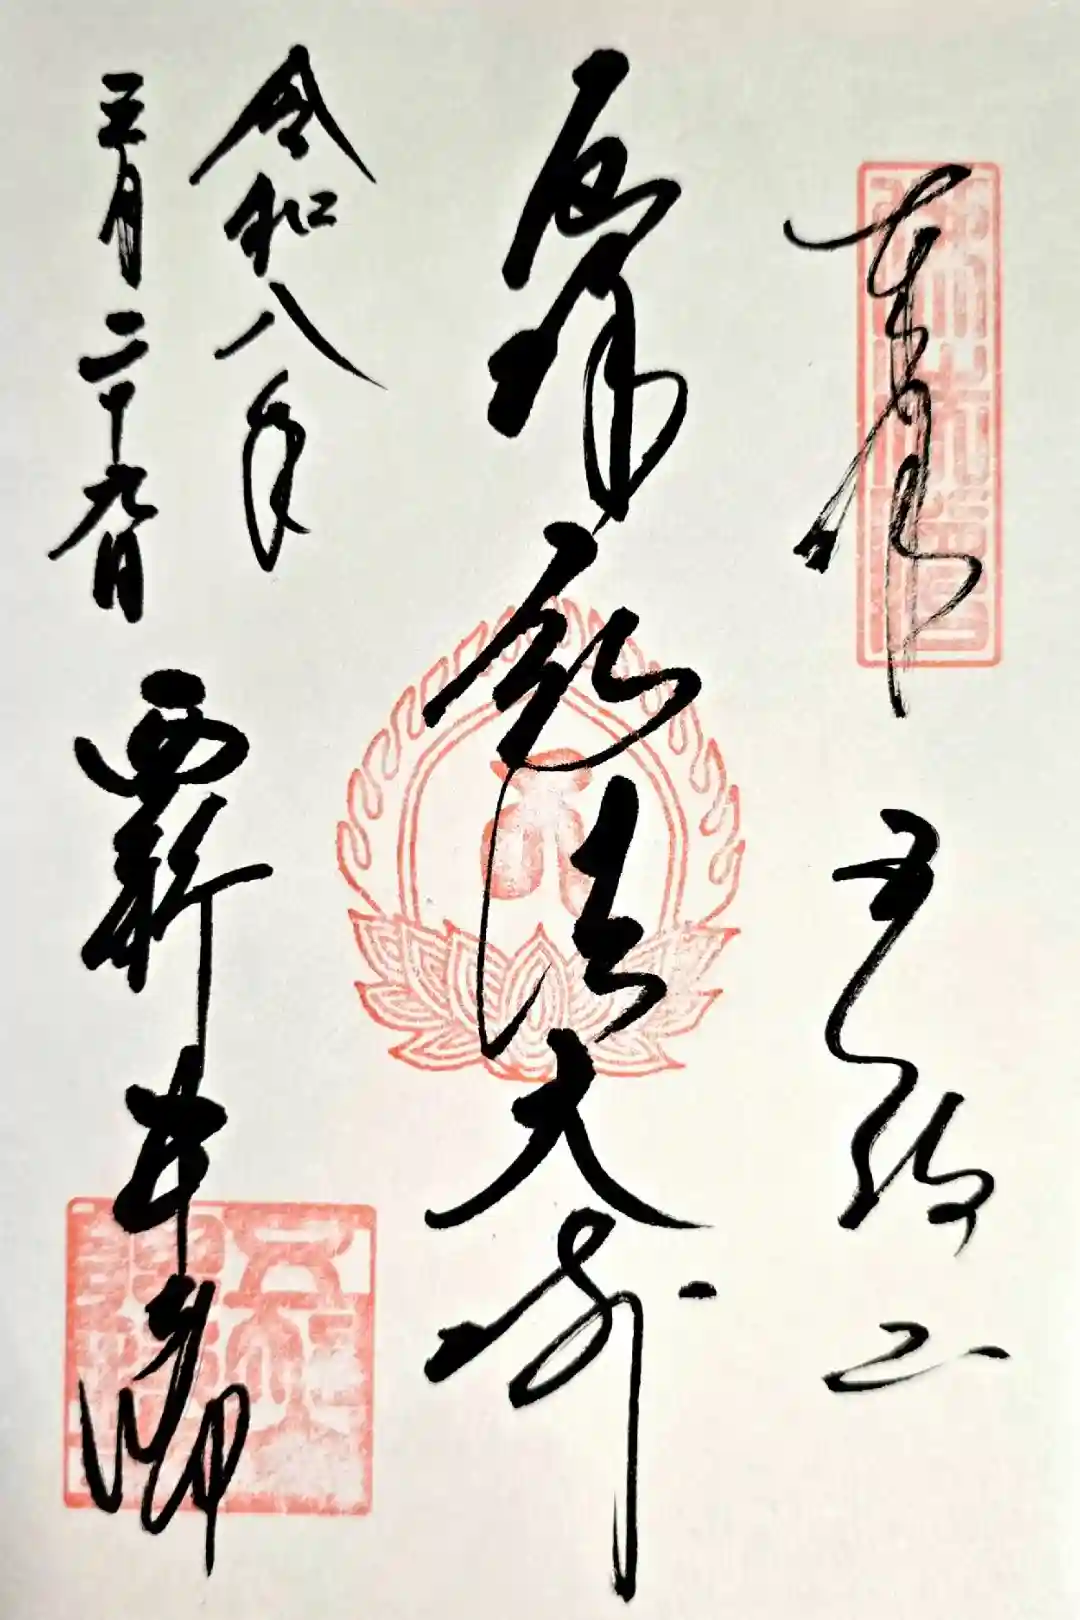 奉拝 五智山
厄除弘法大師
令和八年
三月二十九日 西新井大師